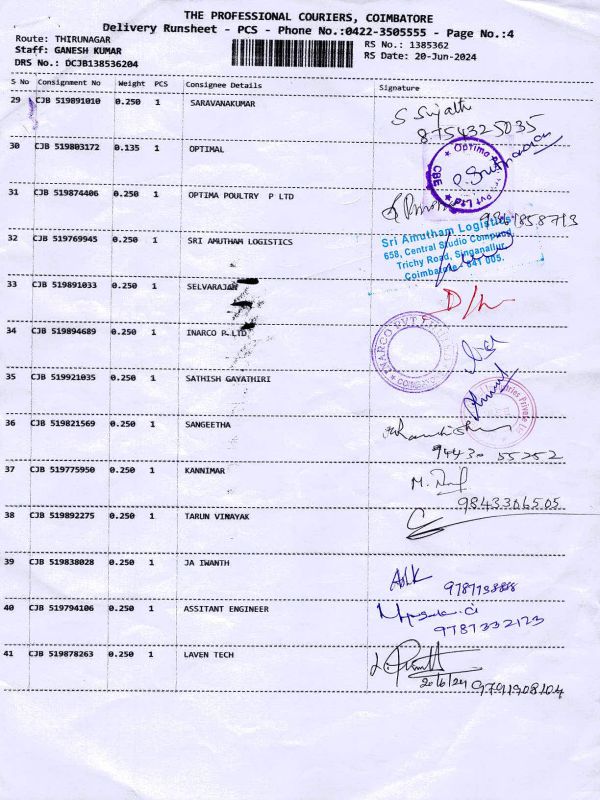 THE PROFESSIONAL COURIERS, COIMBATORE
Delivery Runsheet - PCS - Phone No.:0422-3505555 - Page No.:4
Route: THIRUNAGAR
Staff: GANESH KUMAR
DRS No.: DCJB138536204
RS No.: 1385362
RS Date: 20-Jun-2024
S No Consignment No Weight PCS Consignee Details Signature
29 CJB 519891010 0.250 1 SARAVANAKUMAR
8754325035
30 CJB 519803172 0.135 1 OPTIMAL
31 CJB 519874406 0.250 1 OPTIMA POULTRY P LTD
32 CJB 519769945 0.250 1 SRI AMUTHAM LOGISTICS
Sri Amutham Logistics
658, Central Studio Compund
Trichy Road, Singanallur,
Coimbatore - 641 005.
33 CJB 519891033 0.250 1 SELVARAJAN
34 CJB 519894689 0.250 1 INARCO P LTD
35 CJB 519921035 0.250 1 SATHISH GAYATHIRI
36 CJB 519821569 0.250 1 SANGEETHA
94430 55252
37 CJB 519775950 0.250 1 KANNIMAR
9843306505
38 CJB 519892275 0.250 1 TARUN VINAYAK
39 CJB 519838028 0.250 1 JA IWANTH
40 CJB 519794106 0.250 1 ASSITANT ENGINEER
9787332123
41 CJB 519878263 0.250 1 LAVEN TECH
20/6/24 9791908104